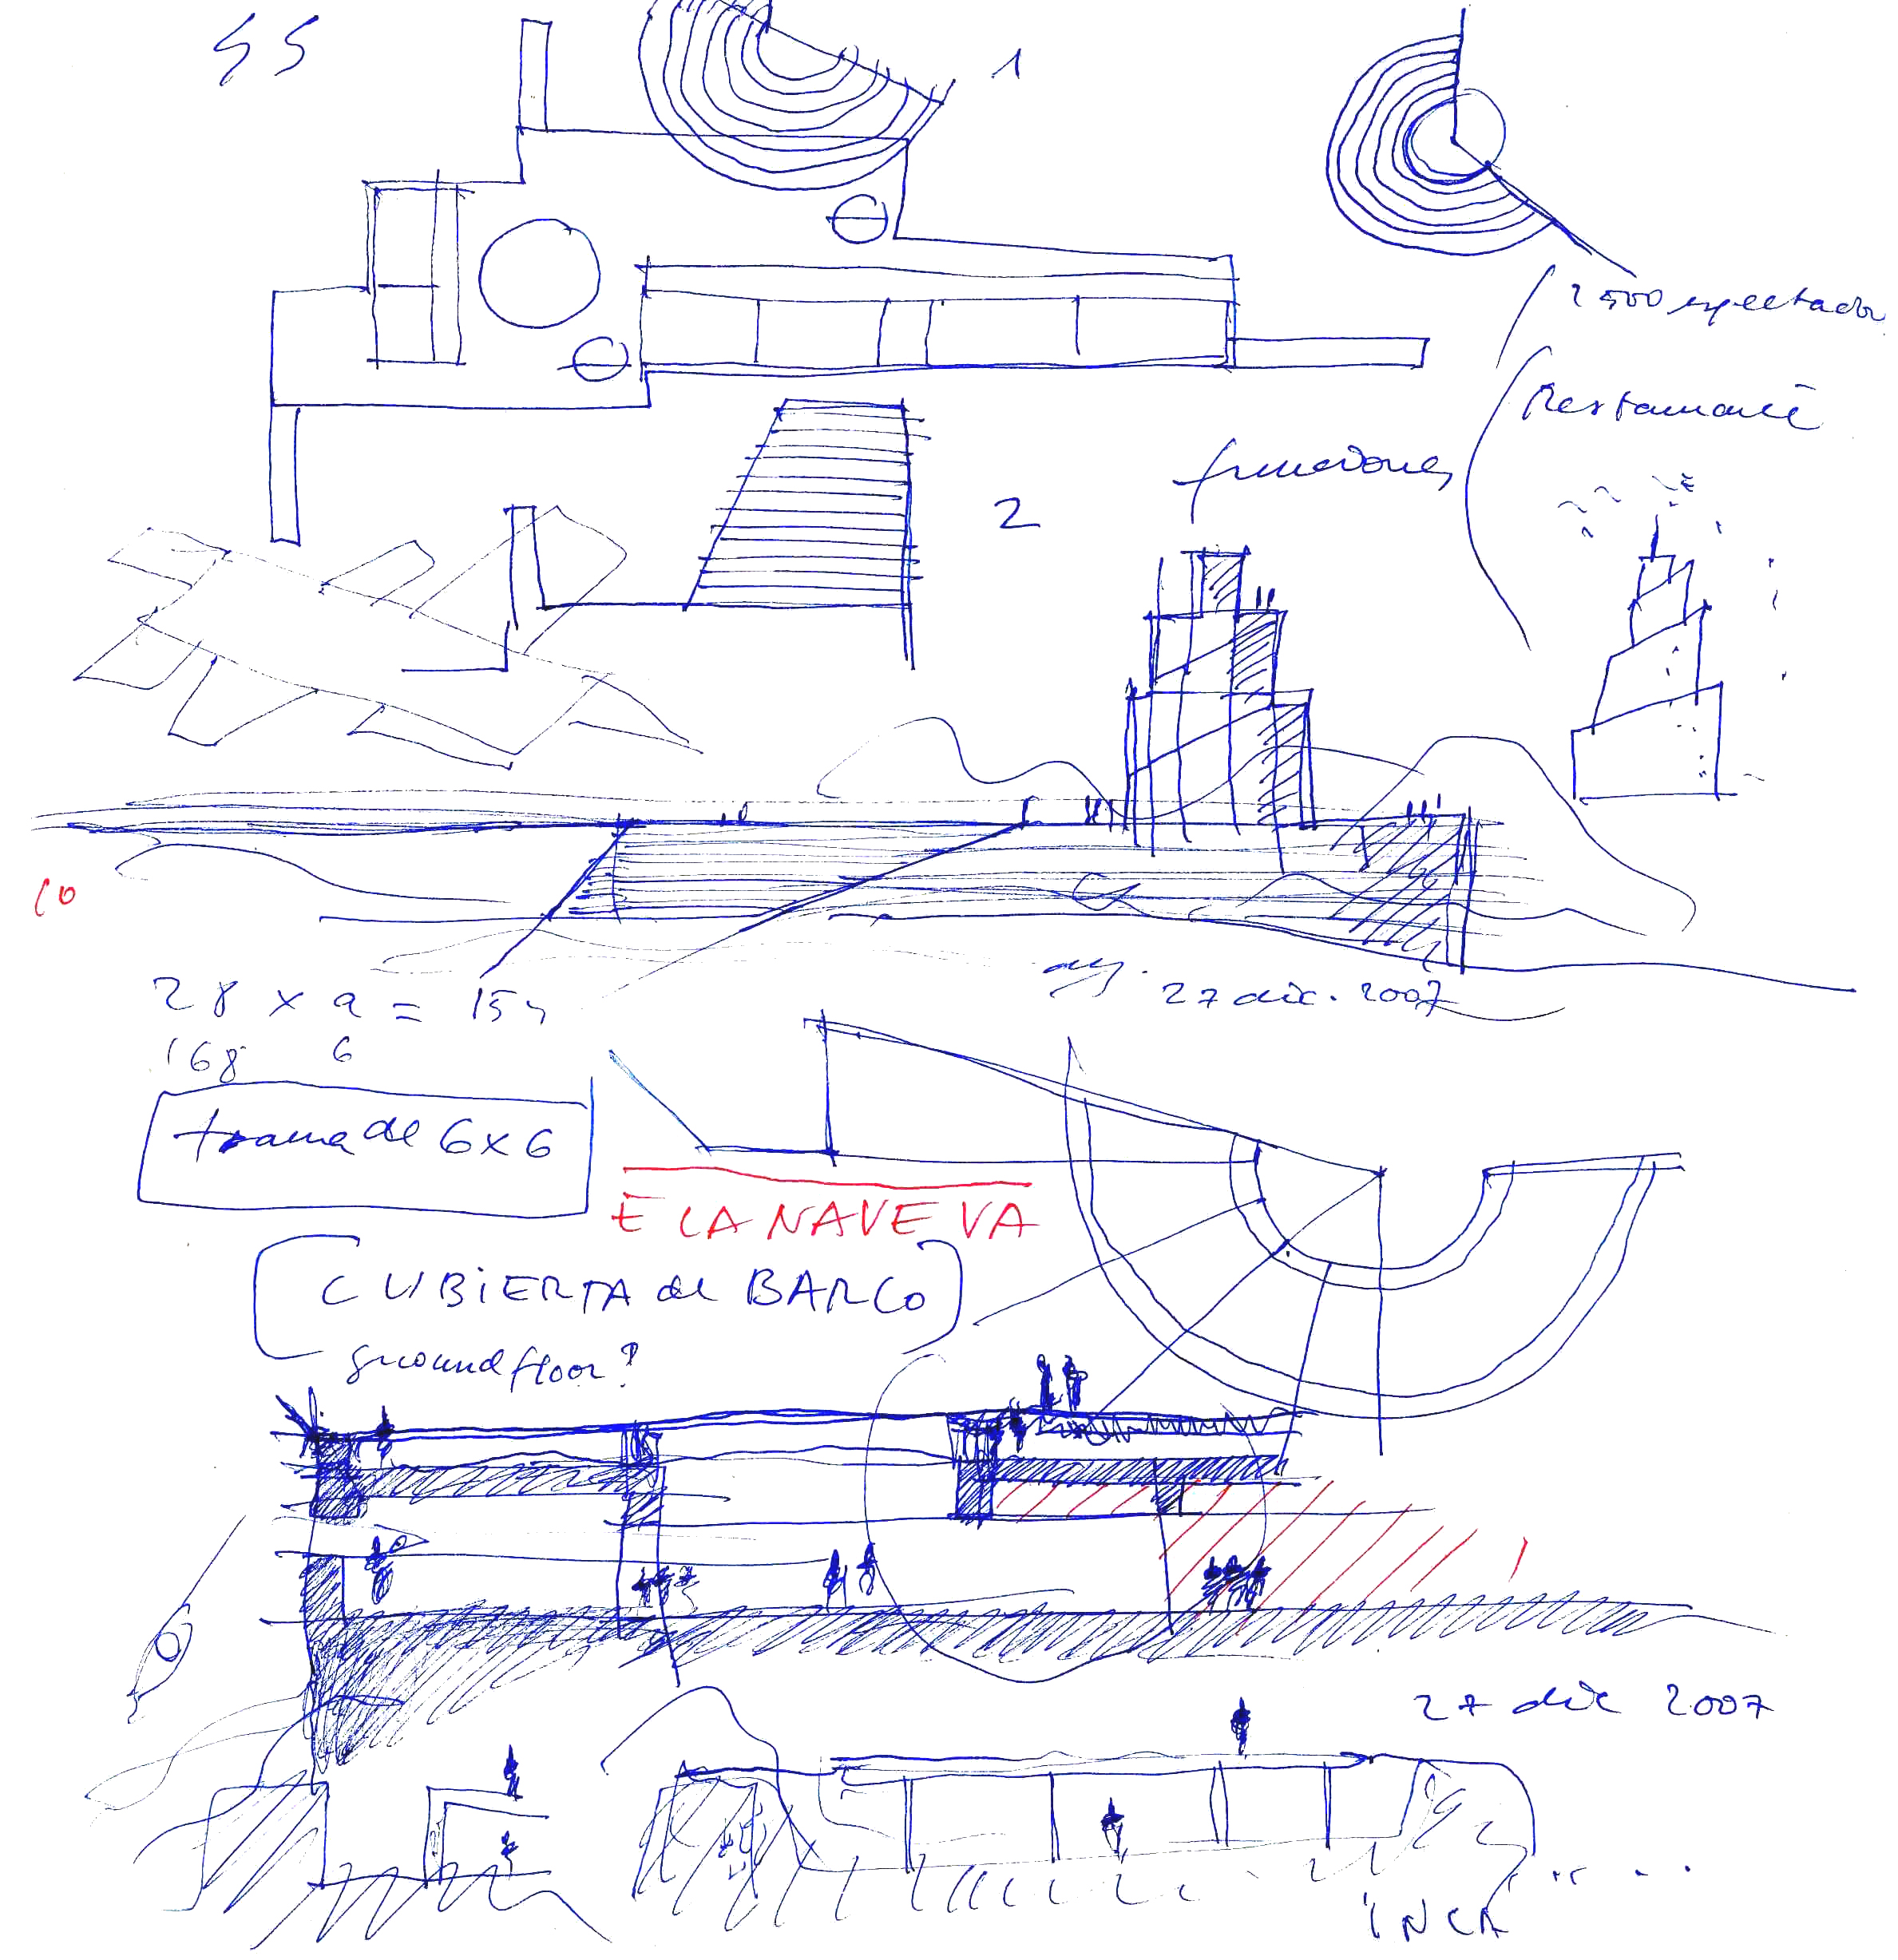 1
2500 espectador
Restaurante
funciones
2
10
27 dic. 2007
28 x a = 154
168 6
trama de 6x6
E LA NAVE VA
CUBIERTA de BARCO
ground floor?
27 dic 2007
INCA